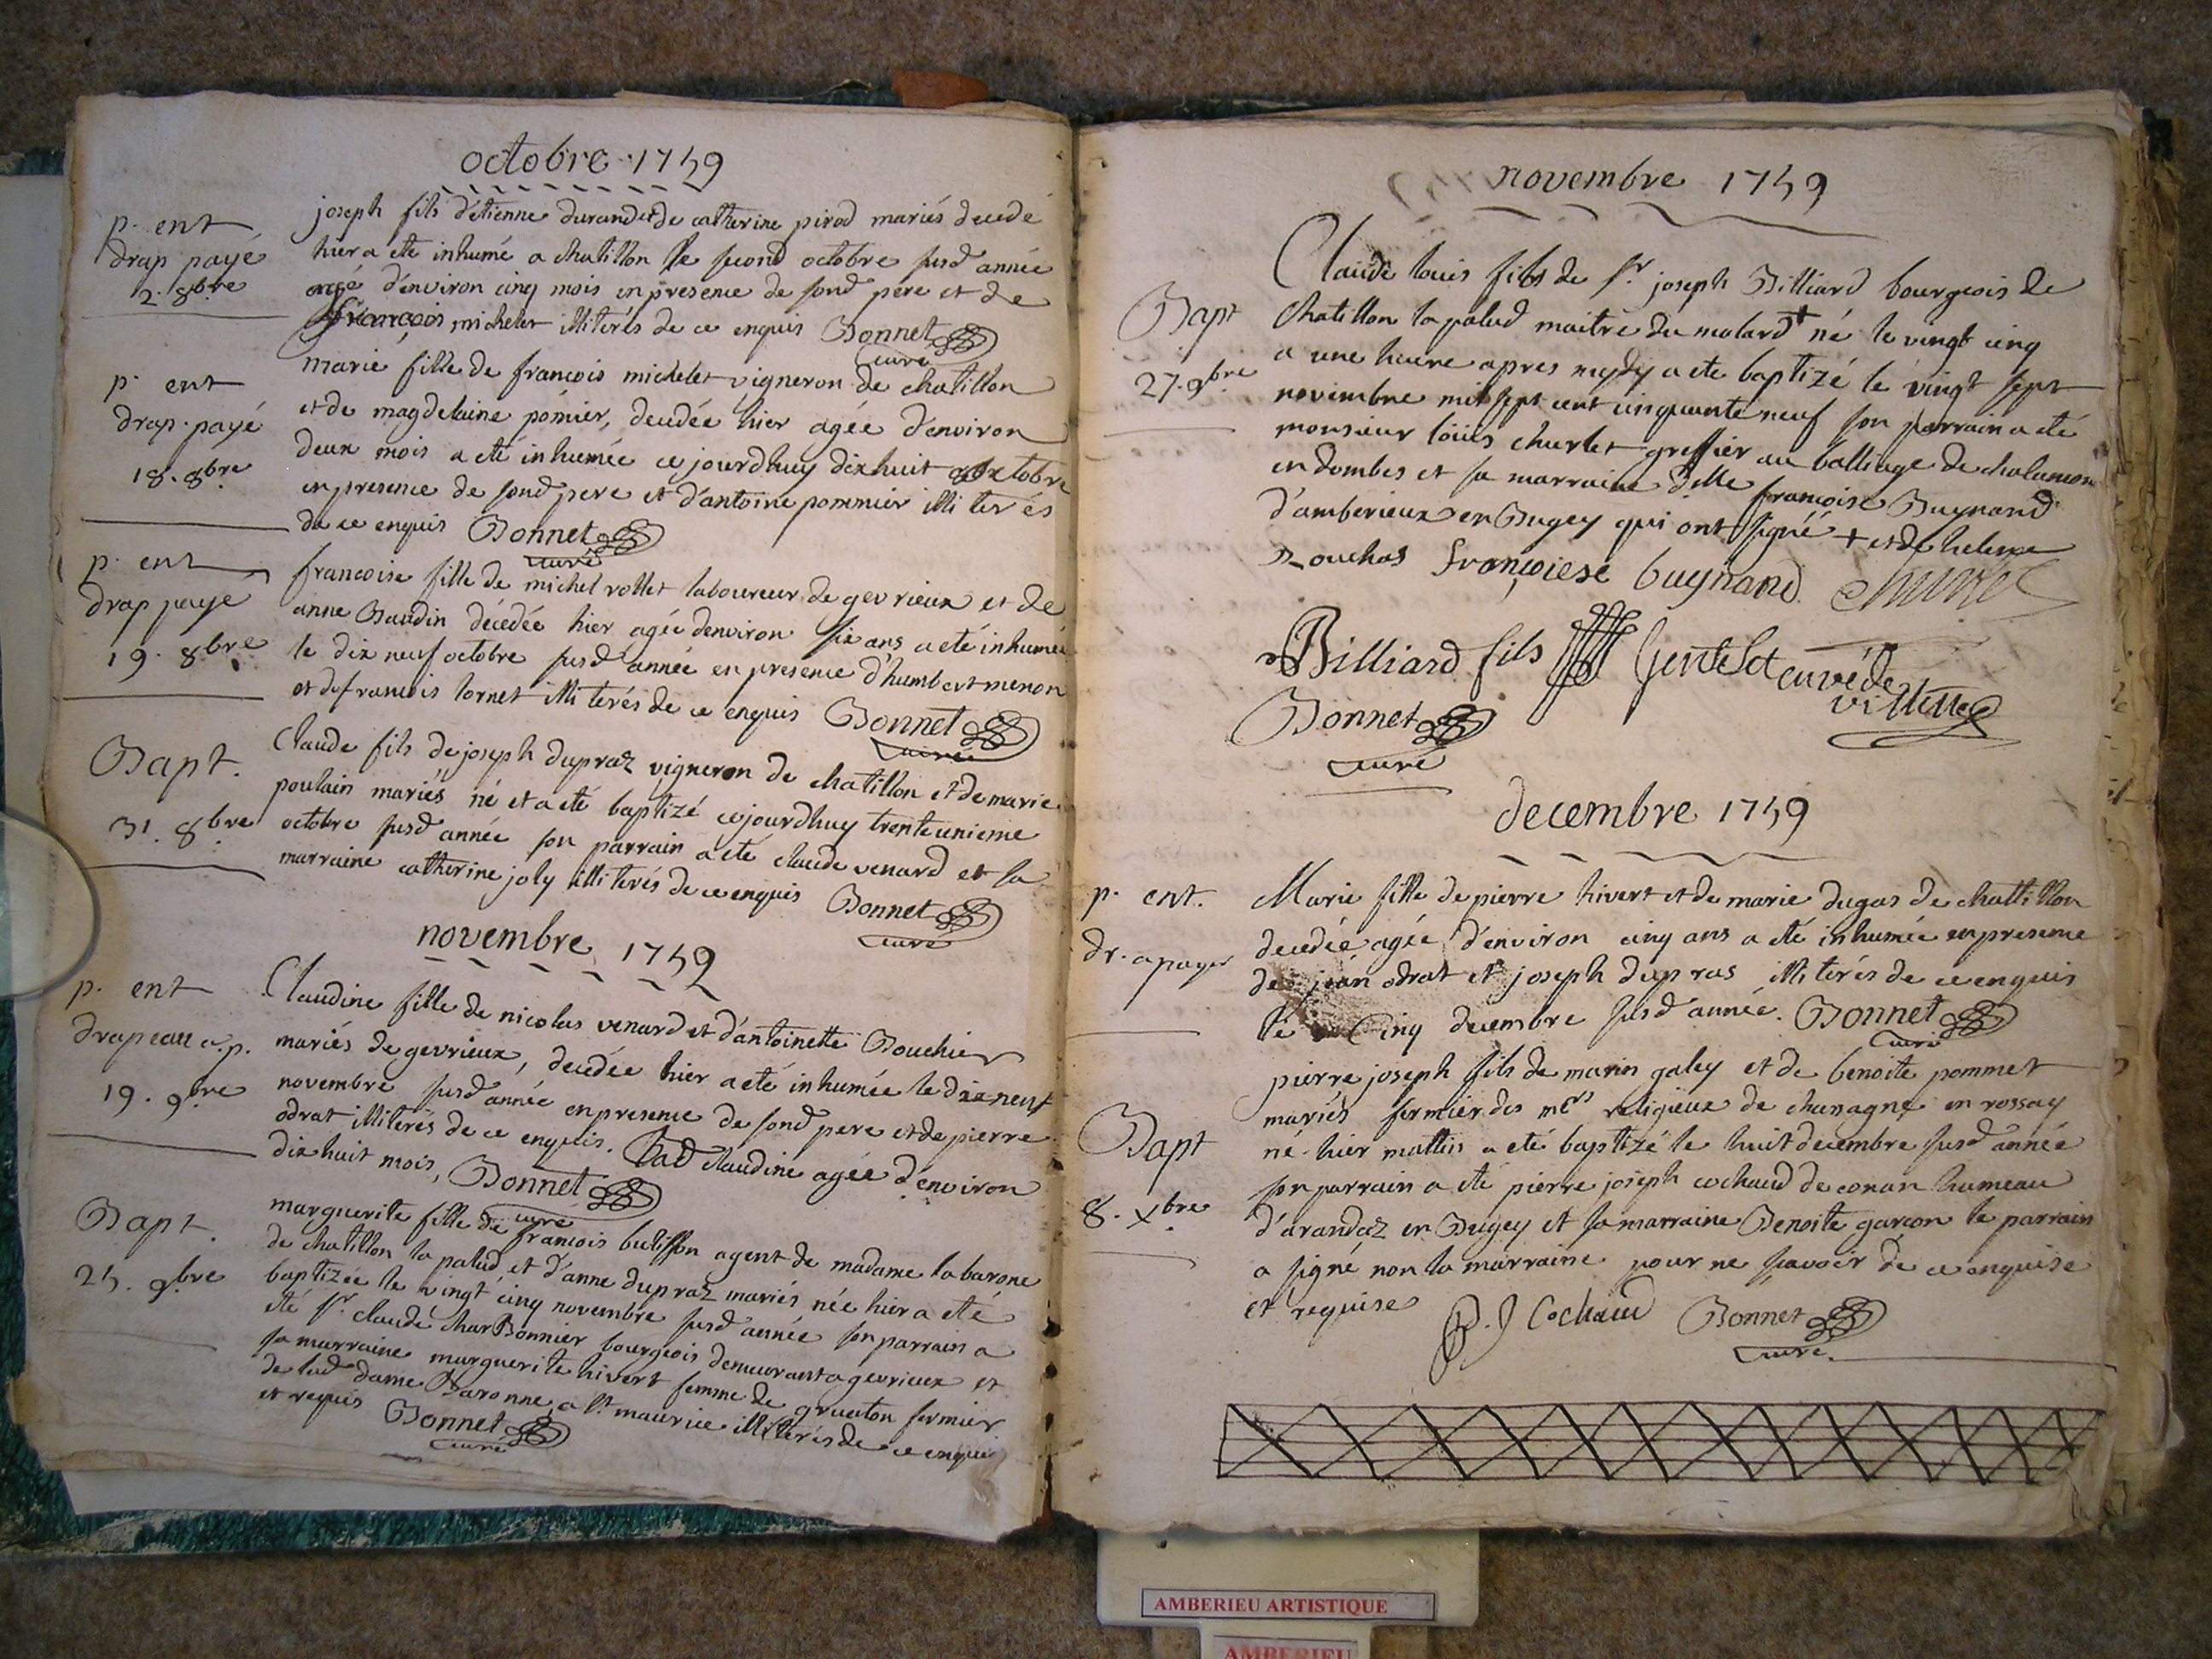 octobre 1759
p. ent
drap payé
2. 8bre
joseph fils d'étienne durand et de catherine pirod mariés decedé
hier a eté inhumé a chatillon le second octobre susd année
agé d'environ cinq mois en presence de sond pere et de
françois michelet illiterés de ce enquis Bonnet
curé
p. ent
drap. payé
18. 8bre
marie fille de francois michelet vigneron de chatillon
et de magdelaine pómier, decedée hier agée d'environ
deux mois a eté inhumée ce jourdhuy dix huit octobre
en presence de sond pere et d'antoine pommier illiterés
de ce enquis Bonnet
curé
p. ent
drap paye
19. 8bre
francoise fille de michel rollet laboureur de gevrieux et de
anne Baudin décédée hier agée denviron six ans a eté inhumée
le dix neuf octobre susd année en presence d'humbert menon
et de francois tornet illiterés de ce enquis Bonnet
curé
Bapt.
31. 8bre
Claude fils de joseph dupraz vigneron de chatillon et de marie
poulain mariés né et a eté baptizé cejourdhuy trente unieme
octobre susd année son parrain a eté claude venard et sa
marraine catherine joly illiterés de ce enquis Bonnet
curé
novembre 1759
p. ent
drapeau a.p.
19. 9bre
Claudine fille de nicolas venard et d'antoinette Bouchier
mariés de gevrieux, decédée hier a eté inhumée le dix neuf
novembre susd année en presence de sond pere et de pierre
odrat illiterés de ce enquis. lad claudine agée d'environ
dix huit mois, Bonnet
curé
Bapt.
25. 9bre
marguerite fille de francois agent de madame la barone
de chatillon la palud et d'anne dupraz mariés née hier a eté
baptizée le vingt cinq novembre susd année son parrain a
eté sr. claude charBonnier bourgeois demeurant a gevrieux et
sa marraine marguerite hivert femme de grueton fermier
de lad dame Baronne a st maurice illiterés de ce enquis
et requis Bonnet
curé
novembre 1759
Bapt
27. 9bre
Claude louis fils de sr. joseph Billiard bourgeois de
Chatillon la palud maitre du molard + né le vingt cinq
a une heure apres mydy a ete baptizé le vingt sept
novembre mil sept cent cinquante neuf son parrain a eté
monsieur loüis churlet greffier au balliage de chalamon
en dombes et sa marraine dlle francoise Buynand
d'amberieux en Bugey qui ont signé + et de helene
Rouchas françoiese buynand
Billiard fils Gentelet curé de
villette
Bonnet
curé
decembre 1759
p. ent.
dr. a payer
Marie fille de pierre hivert et de marie dugas de chattillon
decedée agée d'environ cinq ans a eté inhumée en presence
de jean odrat et joseph dupras illiterés de ce enquis
le cinq decembre susd année. Bonnet
curé
Bapt
8. xbre
pierre joseph fils de marin galey et de benoite pommet
mariés fermier des mers religieux de chanagne en rossay
né hier mattin a eté baptizé le huit decembre susd année
son parrain a eté pierre joseph cochaud de conan hameau
d'arandaz en Bugey et sa marraine Benoite garcon le parrain
a signé non la marraine pour ne savoir de ce enquise
et requise P. J Cochaud Bonnet
curé.
AMBERIEU ARTISTIQUE
AMBERIEU